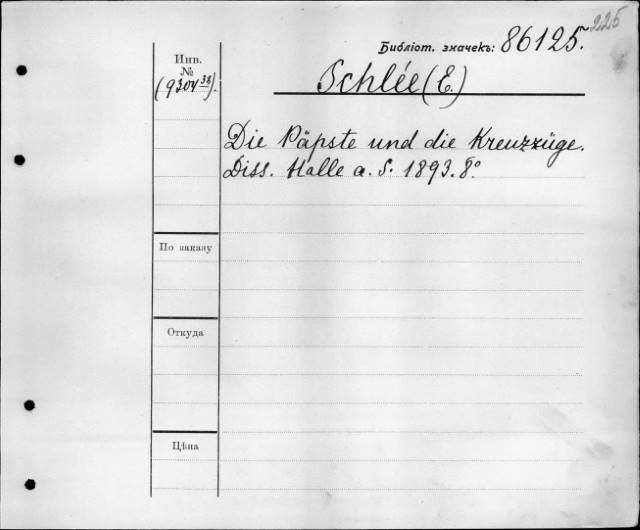 225
Библіот. значекъ: 86125.
Инв.
№
(9304³⁸).
Schlée (E.)
Die Päpste und die Kreuzzüge.
Diss. Halle a. S. 1893. 8°
По заказу
Откуда
Цѣна